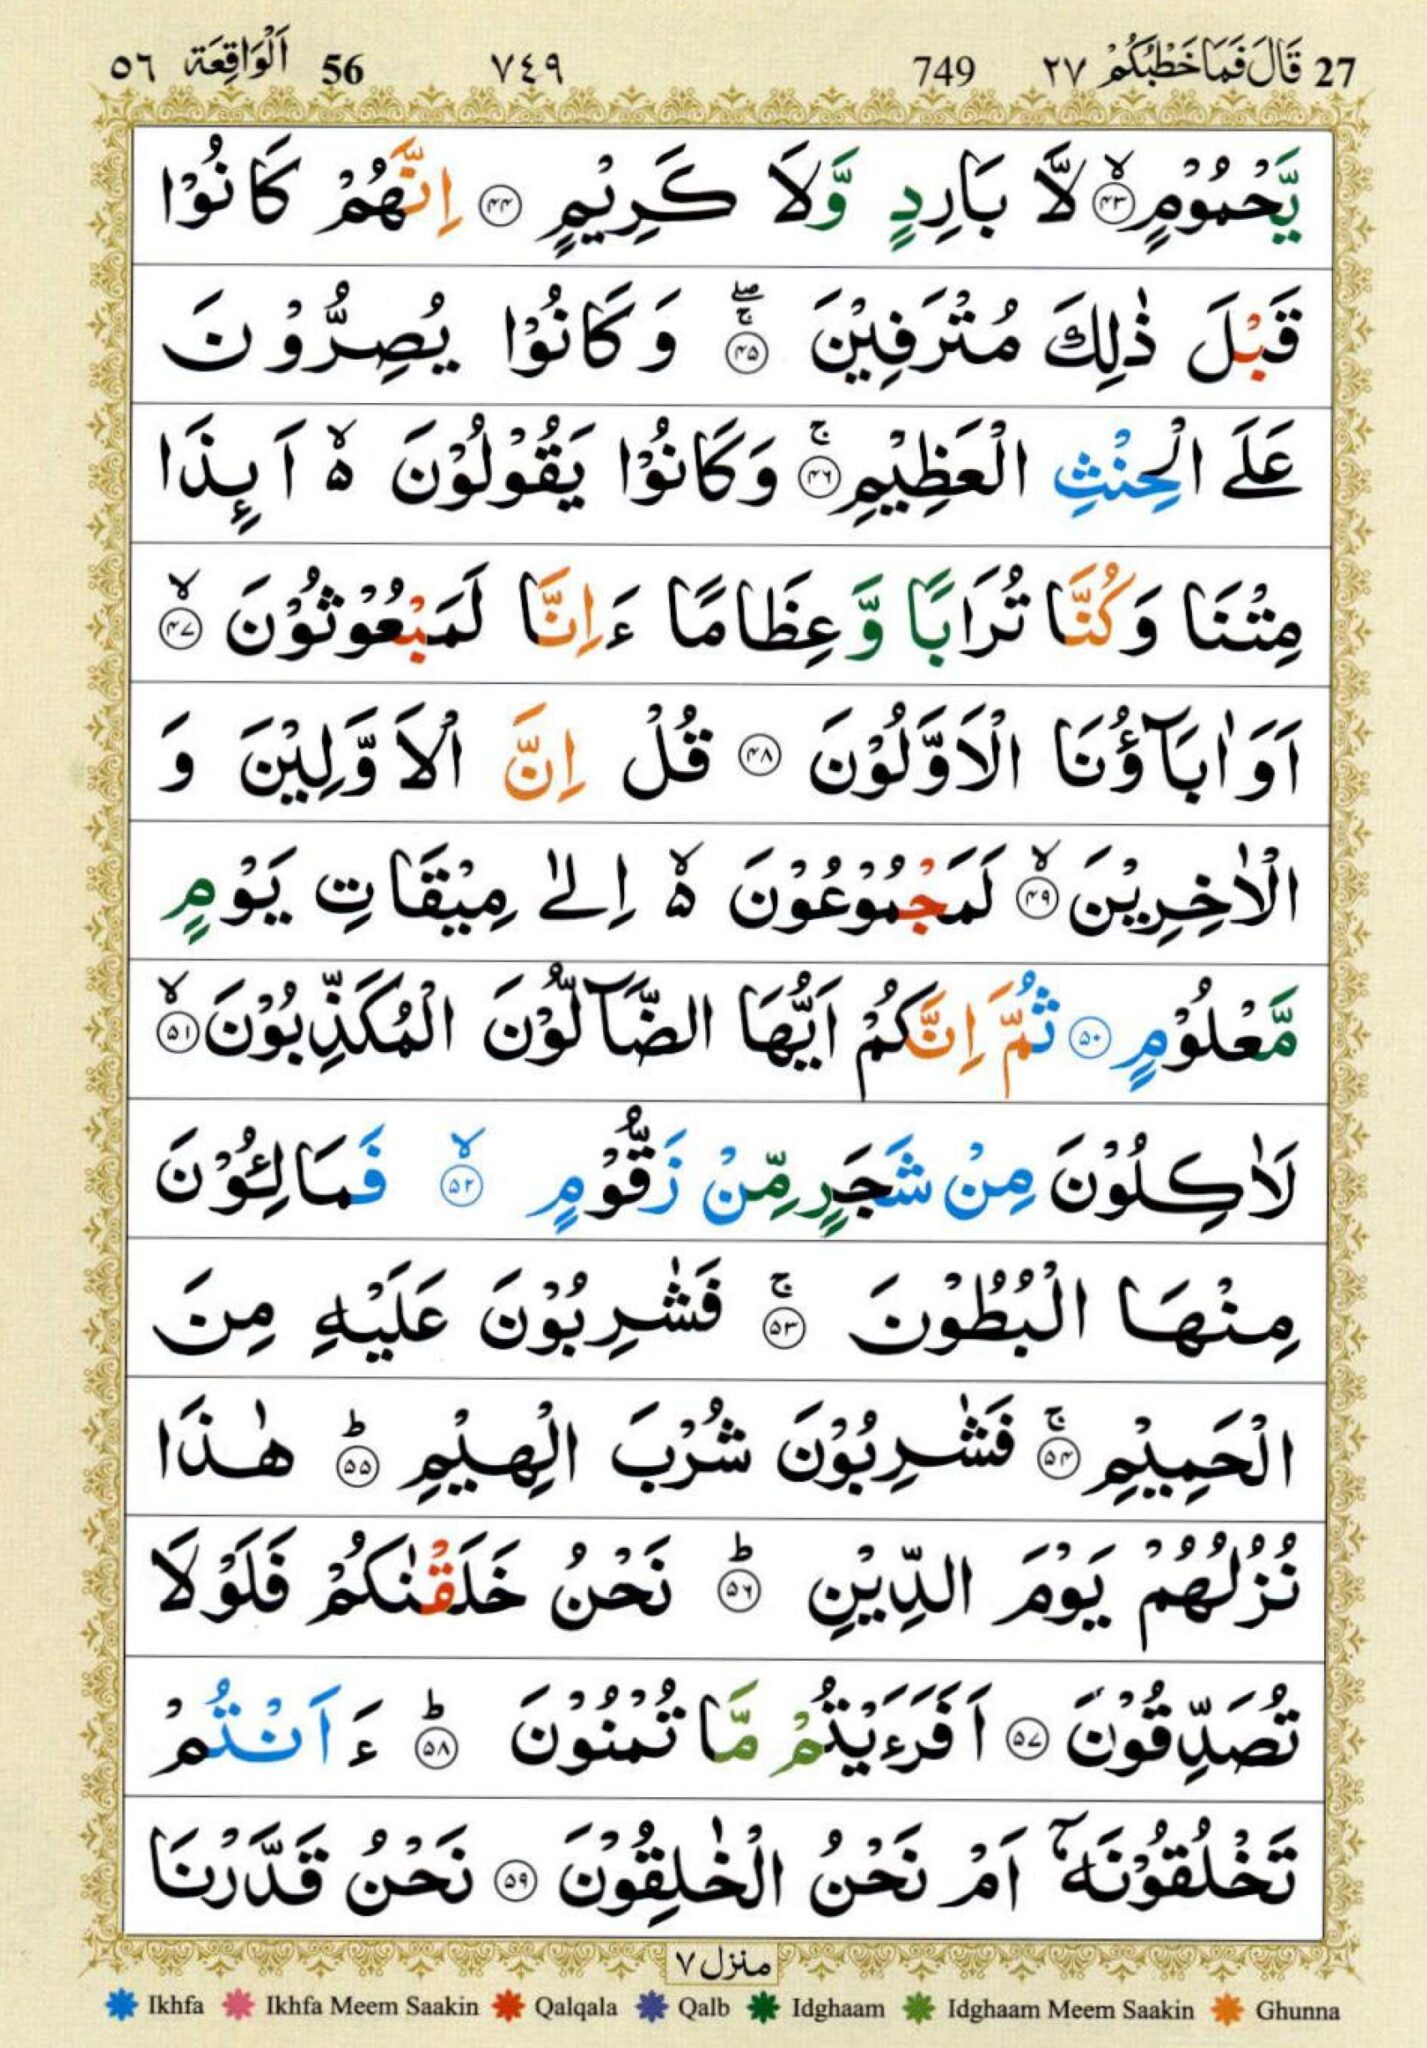 27 قَالَ فَمَا خَطْبُكُمْ ٢٧ 749 ٧٤٩ 56 اَلْوَاقِعَة ٥٦
يَّحْمُوْمٍ ۙ‏﴿۴۳﴾ لَّا بَارِدٍ وَّلَا كَرِيْمٍ ﴿۴۴﴾ اِنَّهُمْ كَانُوْا
قَبْلَ ذٰلِكَ مُتْرَفِيْنَ ۚۖ ﴿۴۵﴾ وَكَانُوْا يُصِرُّوْنَ
عَلَى الْحِنْثِ الْعَظِيْمِ ۚ ﴿۴۶﴾ وَكَانُوْا يَقُوْلُوْنَ ۙ۬ اَىِٕذَا
مِتْنَا وَكُنَّا تُرَابًا وَّعِظَامًا ءَاِنَّا لَمَبْعُوْثُوْنَ ۙ ﴿۴۷﴾
اَوَاٰبَآؤُنَا الْاَوَّلُوْنَ ﴿۴۸﴾ قُلْ اِنَّ الْاَوَّلِيْنَ وَ
الْاٰخِرِيْنَ ۙ ﴿۴۹﴾ لَمَجْمُوْعُوْنَ ۙ۬ اِلٰى مِيْقَاتِ يَوْمٍ
مَّعْلُوْمٍ ﴿۵۰﴾ ثُمَّ اِنَّكُمْ اَيُّهَا الضَّآلُّوْنَ الْمُكَذِّبُوْنَ ۙ ﴿۵۱﴾
لَاٰكِلُوْنَ مِنْ شَجَرٍ مِّنْ زَقُّوْمٍ ۙ ﴿۵۲﴾ فَمَالِـُٔوْنَ
مِنْهَا الْبُطُوْنَ ۚ ﴿۵۳﴾ فَشٰرِبُوْنَ عَلَيْهِ مِنَ
الْحَمِيْمِ ۚ ﴿۵۴﴾ فَشٰرِبُوْنَ شُرْبَ الْهِيْمِ ؕ ﴿۵۵﴾ هٰذَا
نُزُلُهُمْ يَوْمَ الدِّيْنِ ؕ ﴿۵۶﴾ نَحْنُ خَلَقْنٰكُمْ فَلَوْلَا
تُصَدِّقُوْنَ ﴿۵۷﴾ اَفَرَءَيْتُمْ مَّا تُمْنُوْنَ ؕ ﴿۵۸﴾ ءَاَنْتُمْ
تَخْلُقُوْنَهٗۤ اَمْ نَحْنُ الْخٰلِقُوْنَ ﴿۵۹﴾ نَحْنُ قَدَّرْنَا
منزل ٧
Ikhfa Ikhfa Meem Saakin Qalqala Qalb Idghaam Idghaam Meem Saakin Ghunna